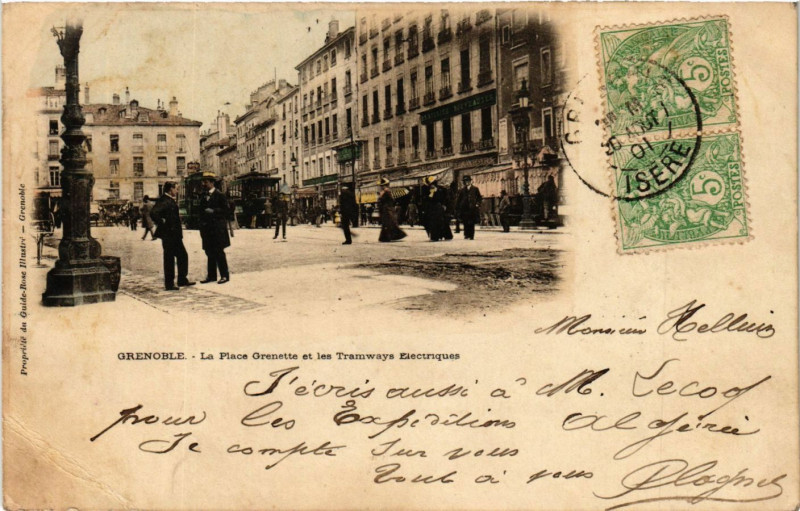 Propriété du Guide-Rose Illustré — Grenoble
5c
POSTES
5c
POSTES
01
ISÈRE
GRENOBLE. - La Place Grenette et les Tramways Electriques
Monsieur
J'écris aussi à M. Lecoq
pour les Expéditions Algérie
Je compte sur vous
Tout à vous